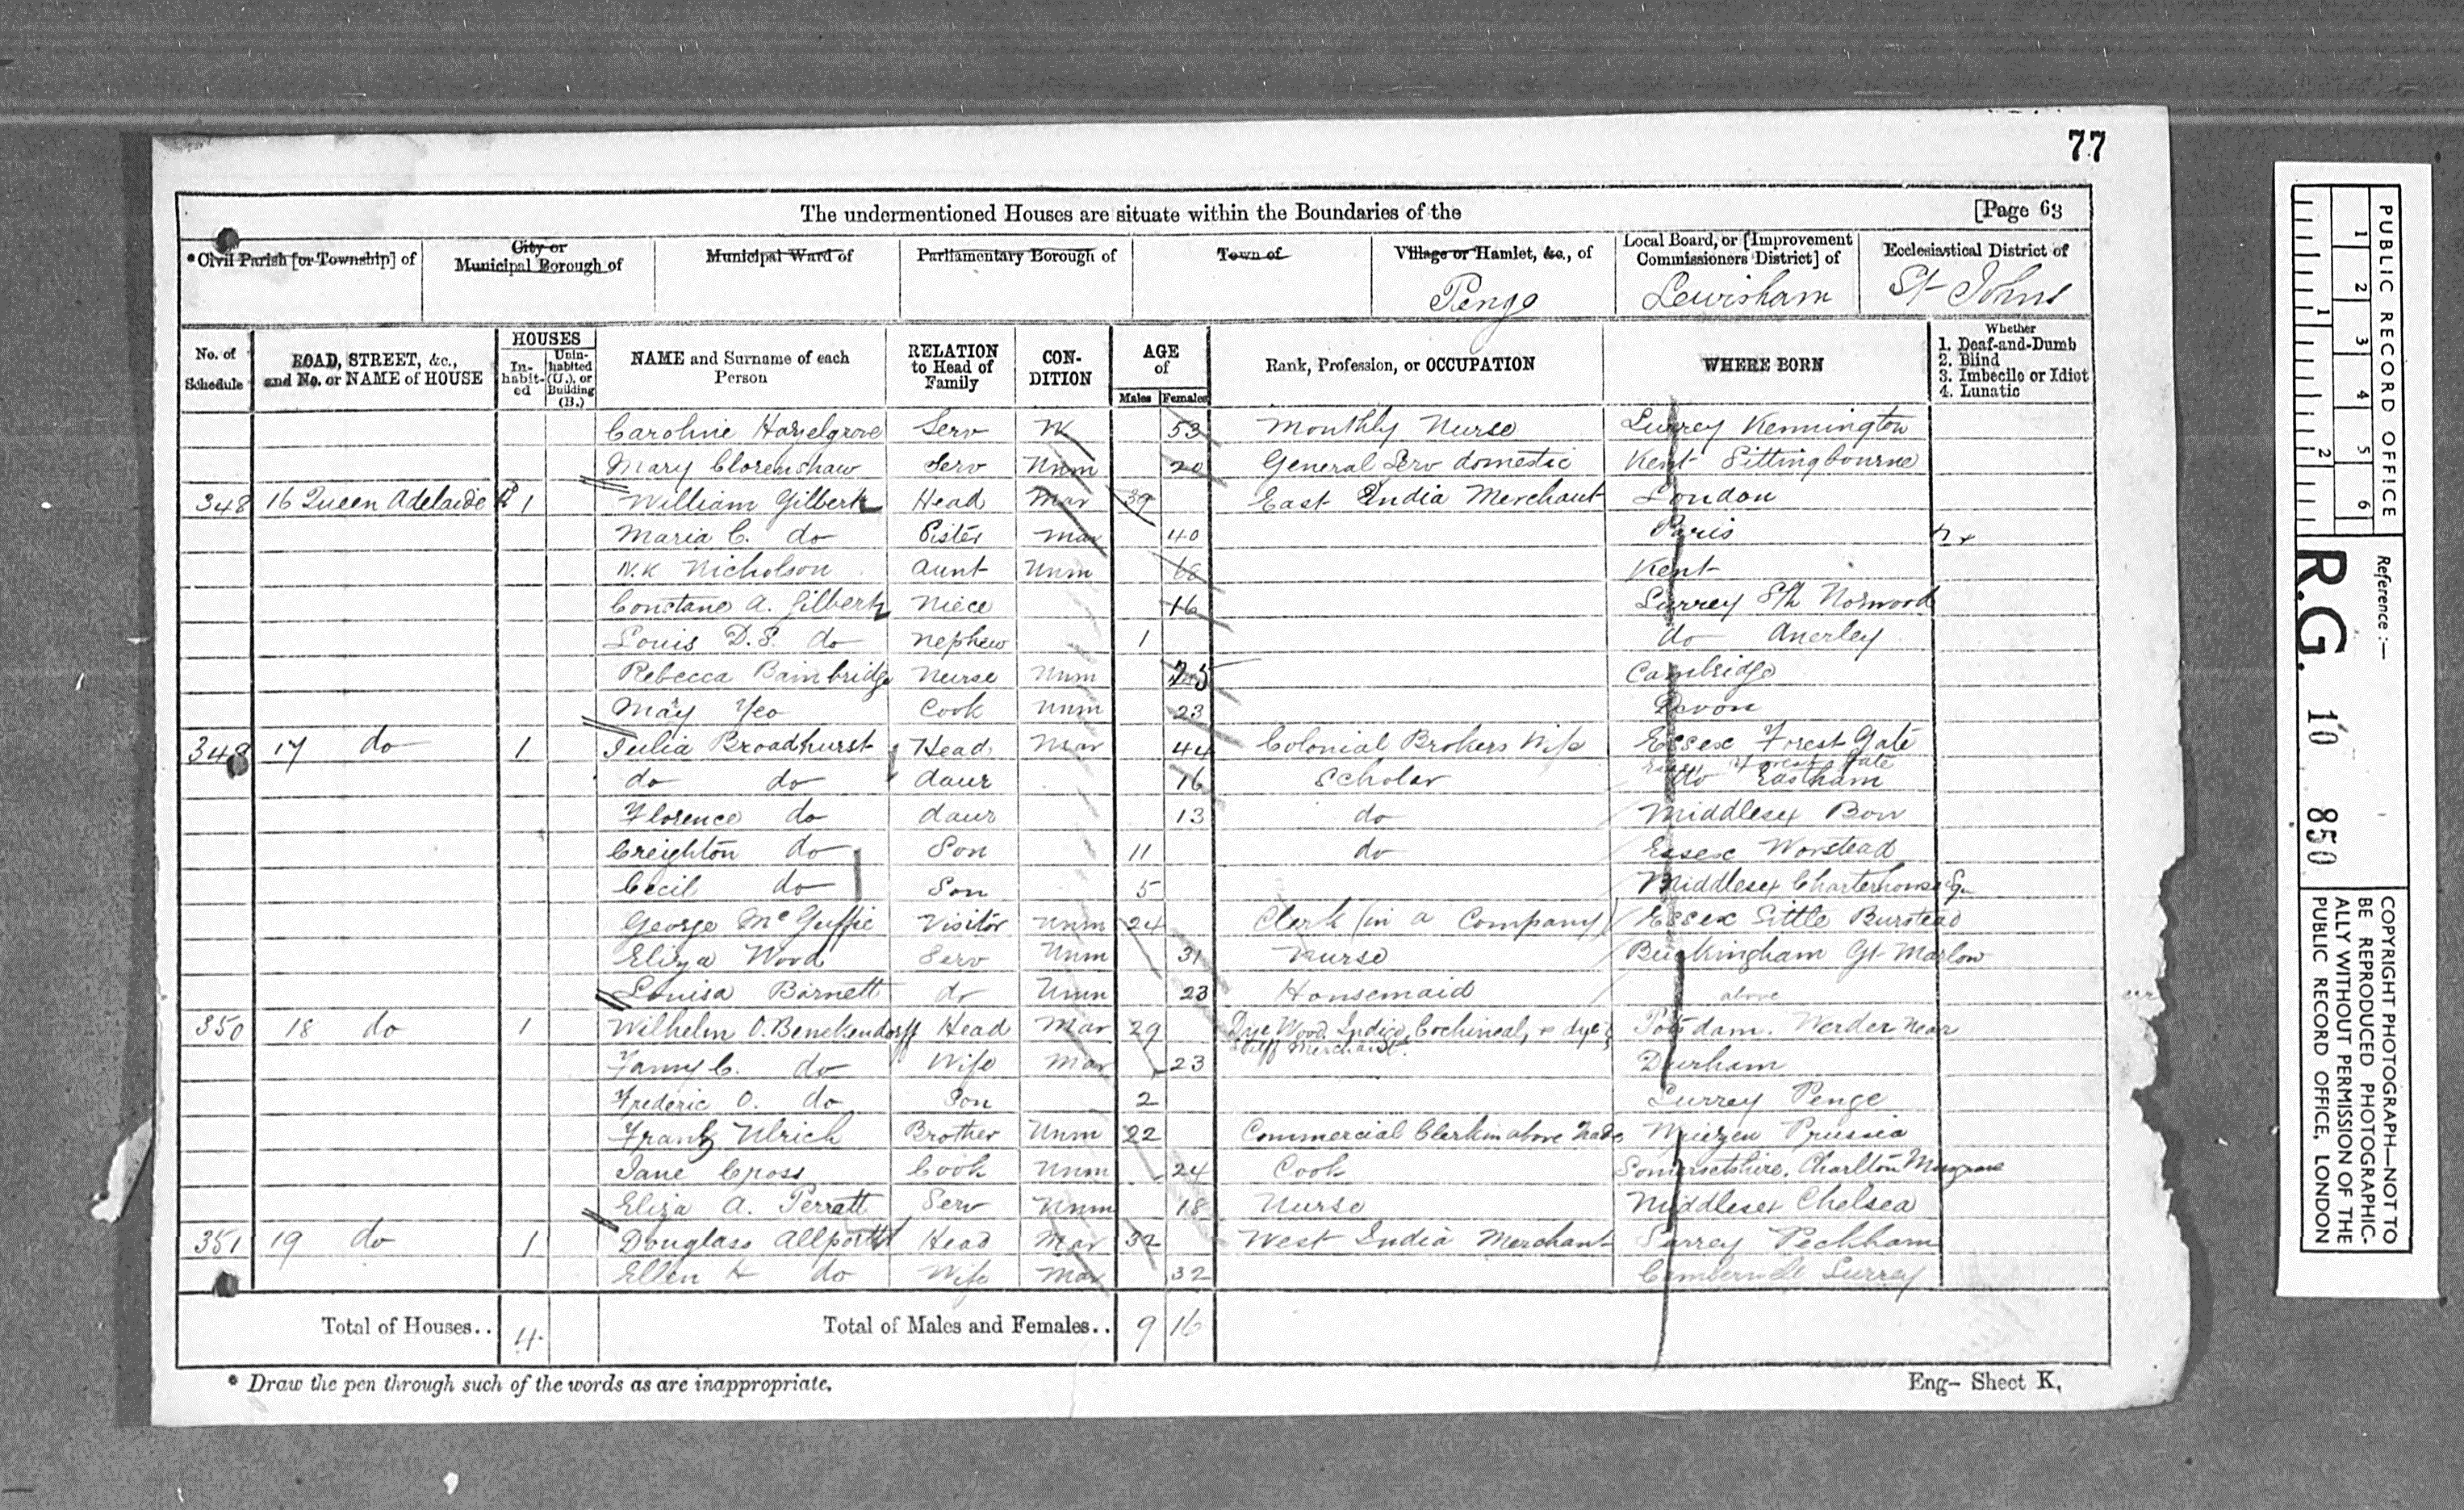 77
The undermentioned Houses are situate within the Boundaries of the [Page 63
*Civil Parish [or Township] of City or Municipal Borough of Municipal Ward of Parliamentary Borough of Town of Village or Hamlet, &c., of Local Board, or [Improvement Commissioners District] of Ecclesiastical District of
Penge Lewisham St Johns
No. of Schedule ROAD, STREET, &c., and No. or NAME of HOUSE HOUSES In-habit-ed Unin-habited (U.), or Building (B.) NAME and Surname of each Person RELATION to Head of Family CON-DITION AGE of Males Females Rank, Profession, or OCCUPATION WHERE BORN Whether 1. Deaf-and-Dumb 2. Blind 3. Imbecile or Idiot 4. Lunatic
Caroline Hazelgrove Serv W 53 Monthly Nurse Surrey Kennington
Mary Clorenshaw Serv Unm 20 General Serv domestic Kent Sittingbourne
348 16 Queen Adelaide Rd 1 William Gilbert Head Mar 39 East India Merchant London
Maria C. do Sister Mar 40 Paris
N.K Nicholson Aunt Unm 68 Kent
Constance A. Gilbert Niece 16 Surrey Sth Norwood
Louis D.S. do Nephew 1 do Anerley
Rebecca Bainbridge Nurse Unm 25 Cambridge
Mary Yeo Cook Unm 23 Devon
348 17 do 1 Julia Broadhurst Head Mar 44 Colonial Brokers Wife Essex Forest Gate
do do daur 16 Scholar do Eastham
Florence do daur 13 do Middlesex Bow
Creighton do Son 11 do Essex Wanstead
Cecil do Son 5 Middlesex Charterhouse Sq
George McGuffie Visitor Unm 24 Clerk (in a Company) Essex Little Burstead
Eliza Wood Serv Unm 31 Nurse Buckingham Gt Marlow
Louisa Barnett do Unm 23 Housemaid above
350 18 do 1 Wilhelm O. Benekendorff Head Mar 29 Dye Wood, Indigo, Cochineal, & dye stuff Merchant. Potsdam. Werder near
Fanny C. do Wife Mar 23 Durham
Frederic O. do Son 2 Surrey Penge
Frank Ulrich Brother Unm 22 Commercial Clerk in above Trade Wriezen Prussia
Jane Cross Cook Unm 24 Cook Somersetshire. Charlton Musgrove
Eliza A. Perratt Serv Unm 18 Nurse Middlesex Chelsea
351 19 do 1 Douglass Allport Head Mar 32 West India Merchant Surrey Peckham
Ellen H do Wife Mar 32 Camberwell Surrey
Total of Houses.. 4 Total of Males and Females.. 9 16
* Draw the pen through such of the words as are inappropriate.
Eng- Sheet K,
PUBLIC RECORD OFFICE
1 2 3 4 5 6
1 2
Reference :—
R.G. 10 850
COPYRIGHT PHOTOGRAPH—NOT TO BE REPRODUCED PHOTOGRAPHIC-
ALLY WITHOUT PERMISSION OF THE PUBLIC RECORD OFFICE, LONDON